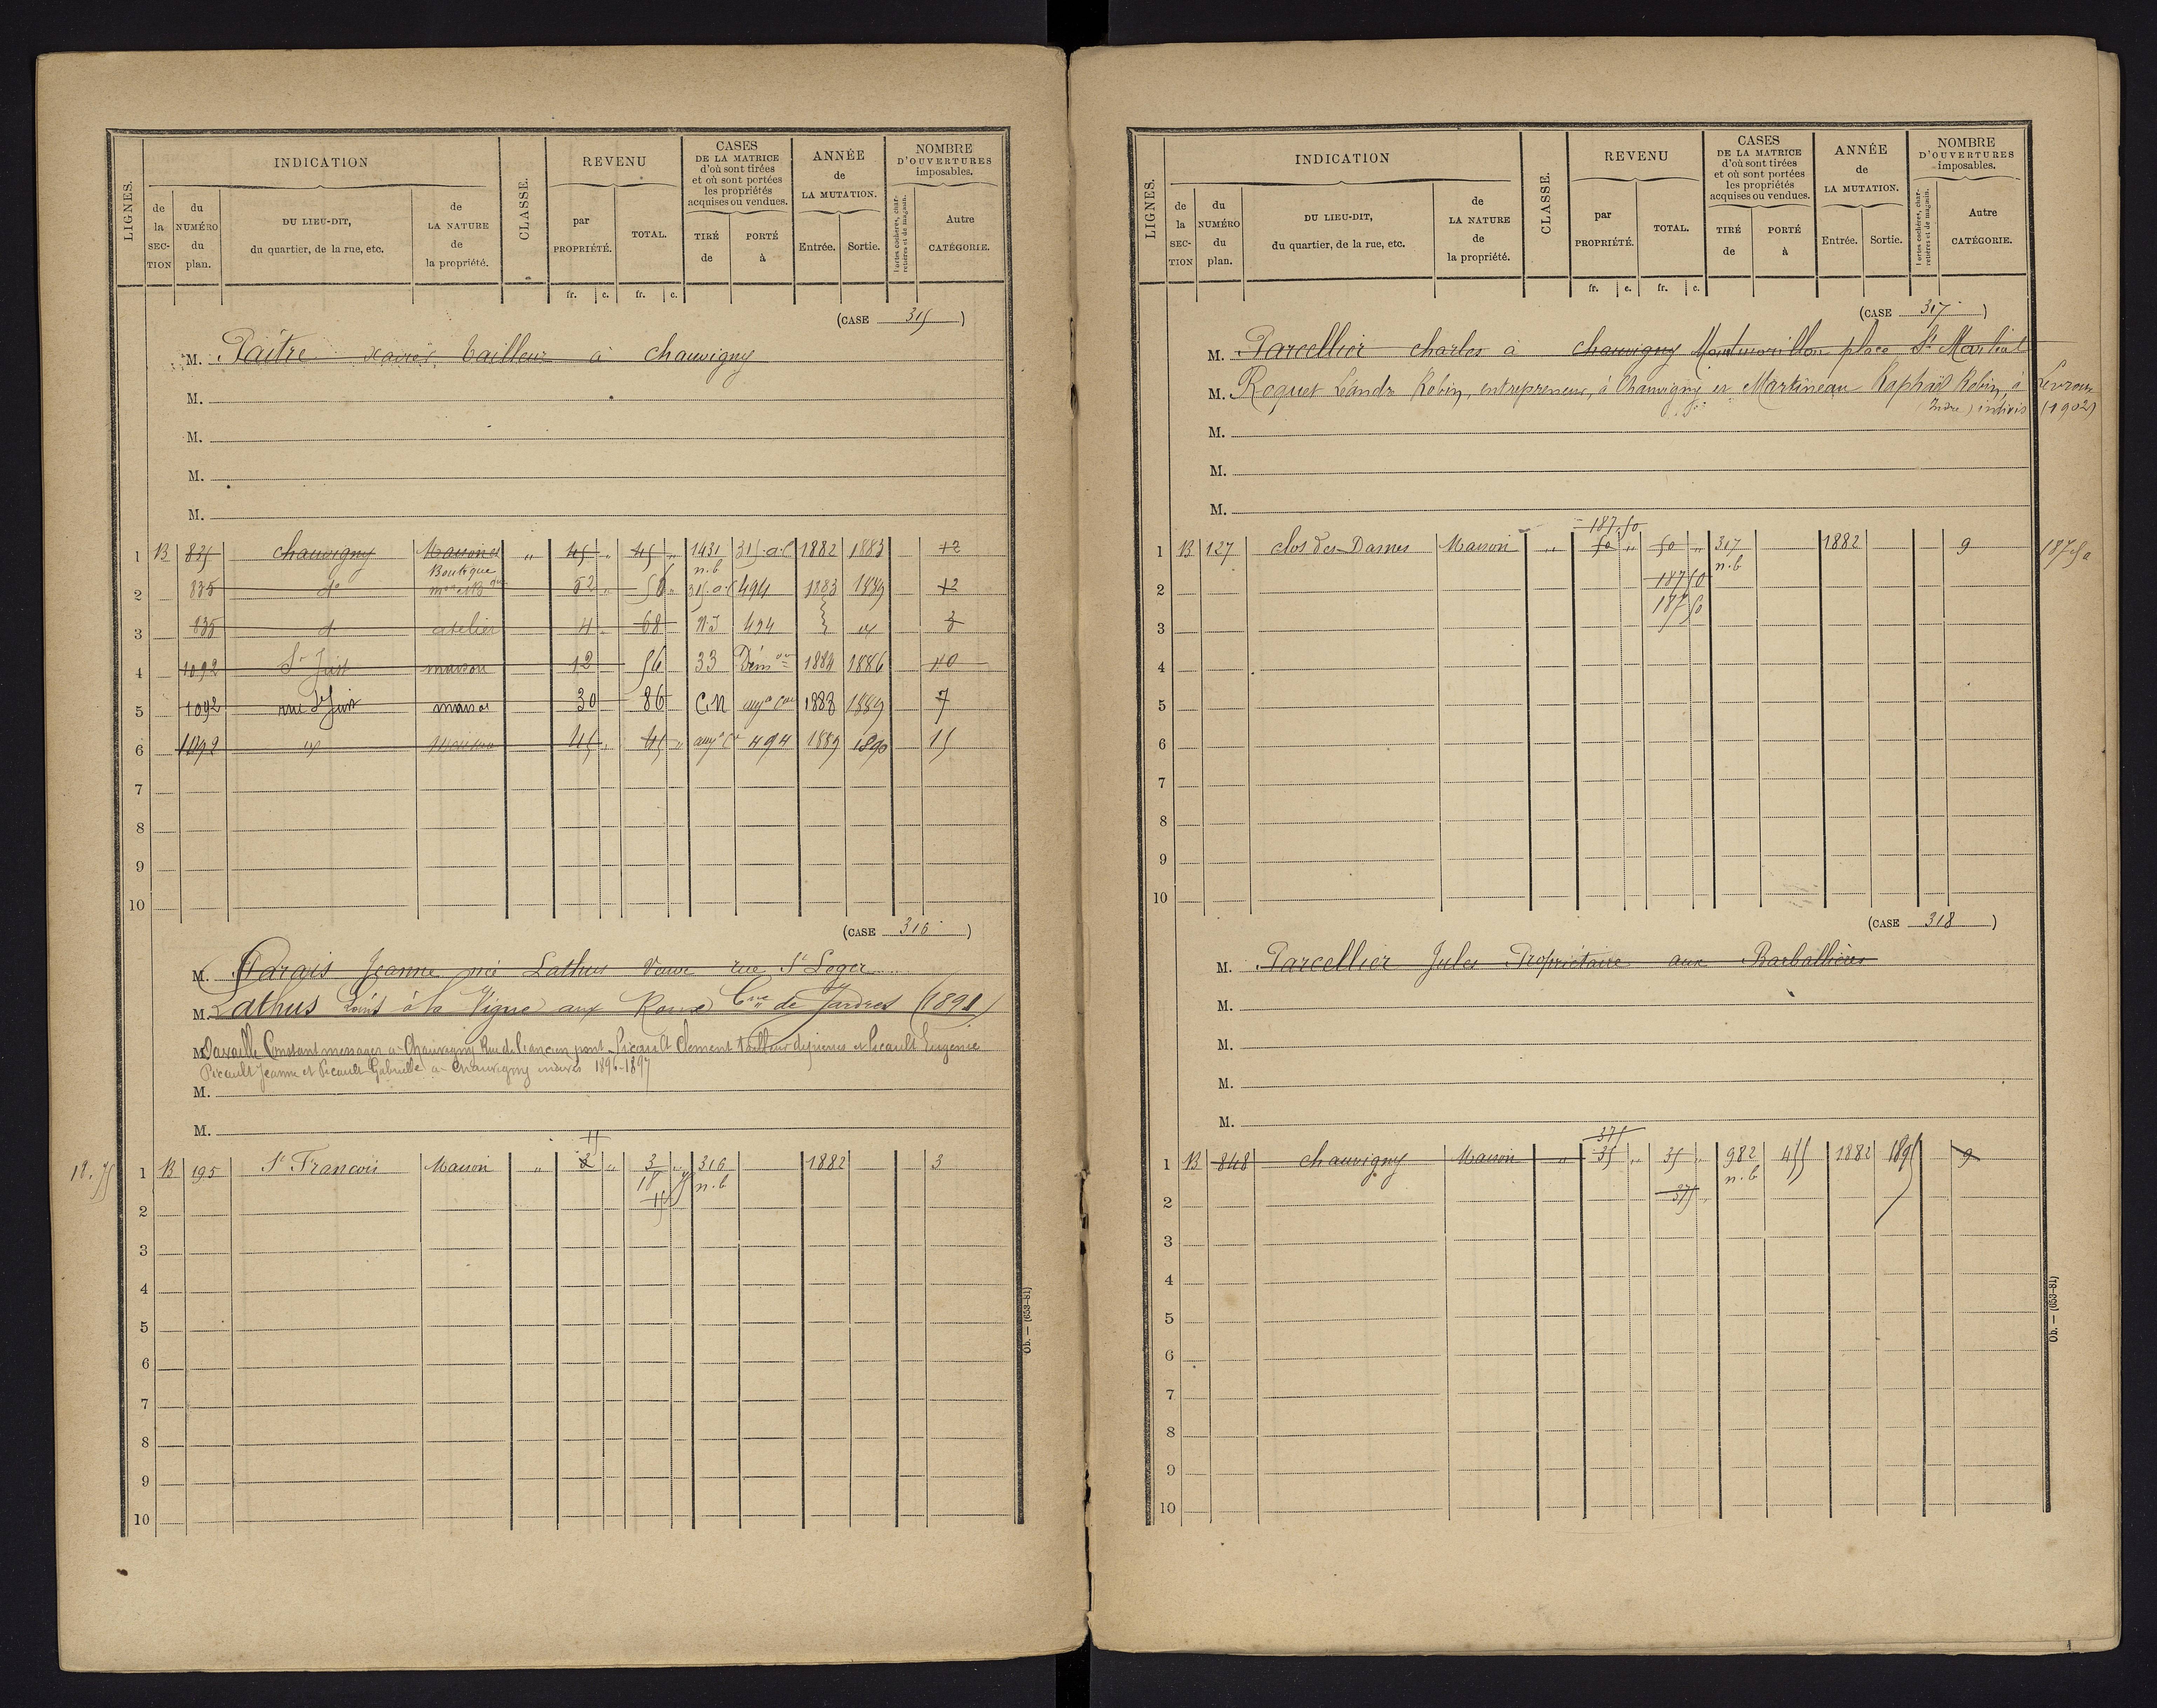 LIGNES.
INDICATION
de la SECTION
du NUMÉRO du plan.
DU LIEU-DIT, du quartier, de la rue, etc.
de LA NATURE de la propriété.
CLASSE.
REVENU
par PROPRIÉTÉ.
TOTAL.
CASES DE LA MATRICE d'où sont tirées et où sont portées les propriétés acquises ou vendues.
TIRÉ de
PORTÉ à
ANNÉE de LA MUTATION.
Entrée. Sortie.
NOMBRE D'OUVERTURES imposables.
Portes cochères, charretières et de magasin.
Autre CATÉGORIE.
fr. c. fr. c.
(CASE 315)
M. Paitre xavier tailleur à chauvigny
M.
M.
M.
M.
1 B 835 chauvigny Maison et Boutique " 45 " 45 " 1431 n.b 315.a.c 1882 1883 12
2 835 do 52 " 56 " 315.a.c 494 1883 1889 12
3 835 d. atelier 4 " 68 N.I 494 3
4 1092 St Just maison 12 56 33 Dém on 1884 1886 10
5 1092 rue St Just maison 30 86 C.N 1888 1889 7
6 1092 Maison 45 " 45 " 494 1889 1890 15
7
8
9
10
(CASE 316)
M. Parais Jeanne née Lathus Veuve rue St Leger
M. Lathus Louis à la Vigne aux Cne de Jardres (1891)
M. Davaille Constant messager à Chauvigny Rue de l'ancien pont Picault Clement tailleur de pierres et Picault Eugenie
Picault Jeanne et Picault Gabrielle à Chauvigny indivis 1896-1897
M.
M.
11
18.75 1 B 195 St Francois Maison " 3 " 3 " 316 n.b 1882 3
18 75
11
2
3
4
5
6
7
8
9
10
Ob. — (653-81)
LIGNES.
INDICATION
de la SECTION
du NUMÉRO du plan.
DU LIEU-DIT, du quartier, de la rue, etc.
de LA NATURE de la propriété.
CLASSE.
REVENU
par PROPRIÉTÉ.
TOTAL.
CASES DE LA MATRICE d'où sont tirées et où sont portées les propriétés acquises ou vendues.
TIRÉ de
PORTÉ à
ANNÉE de LA MUTATION.
Entrée. Sortie.
NOMBRE D'OUVERTURES imposables.
Portes cochères, charretières et de magasin.
Autre CATÉGORIE.
fr. c. fr. c.
(CASE 317)
M. Parcellier charles à chauvigny Montmorillon place St Martial
M. Roquet Léandre Robin, entrepreneur, à Chauvigny et Martineau Raphaël Robin, à Levroux
(Indre) indivis (1902)
M.
M.
M.
187.50
1 B 127 clos des Dames Maison " 50 " 50 " 317 n.b 1882 9 187 50
2 187 50
187 50
3
4
5
6
7
8
9
10
(CASE 318)
M. Parcellier Jules Propriétaire aux Barballières
M.
M.
M.
M.
375
1 B 848 chauvigny Maison " 35 " 35 " 982 n.b 455 1882 1895 9
2 375
3
4
5
6
7
8
9
10
Ob. — (653-81)